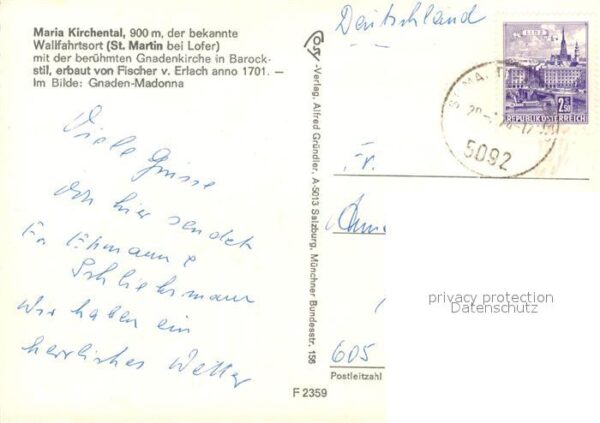 Maria Kirchental, 900 m, der bekannte
Wallfahrtsort (St. Martin bei Lofer)
mit der berühmten Gnadenkirche in Barock-
stil, erbaut von Fischer v. Erlach anno 1701. –
Im Bilde: Gnaden-Madonna
Viele Grüsse
von hier sendet
Fr Ehmann &
Schliehsmann
Wir haben ein
herrliches Wetter
F 2359
-Verlag, Alfred Gründler, A-5013 Salzburg, Münchner Bundesstr. 156
Deutschland
LINZ
2.50
REPUBLIK ÖSTERREICH
5092
Fr.
605
Postleitzahl
privacy protection
Datenschutz